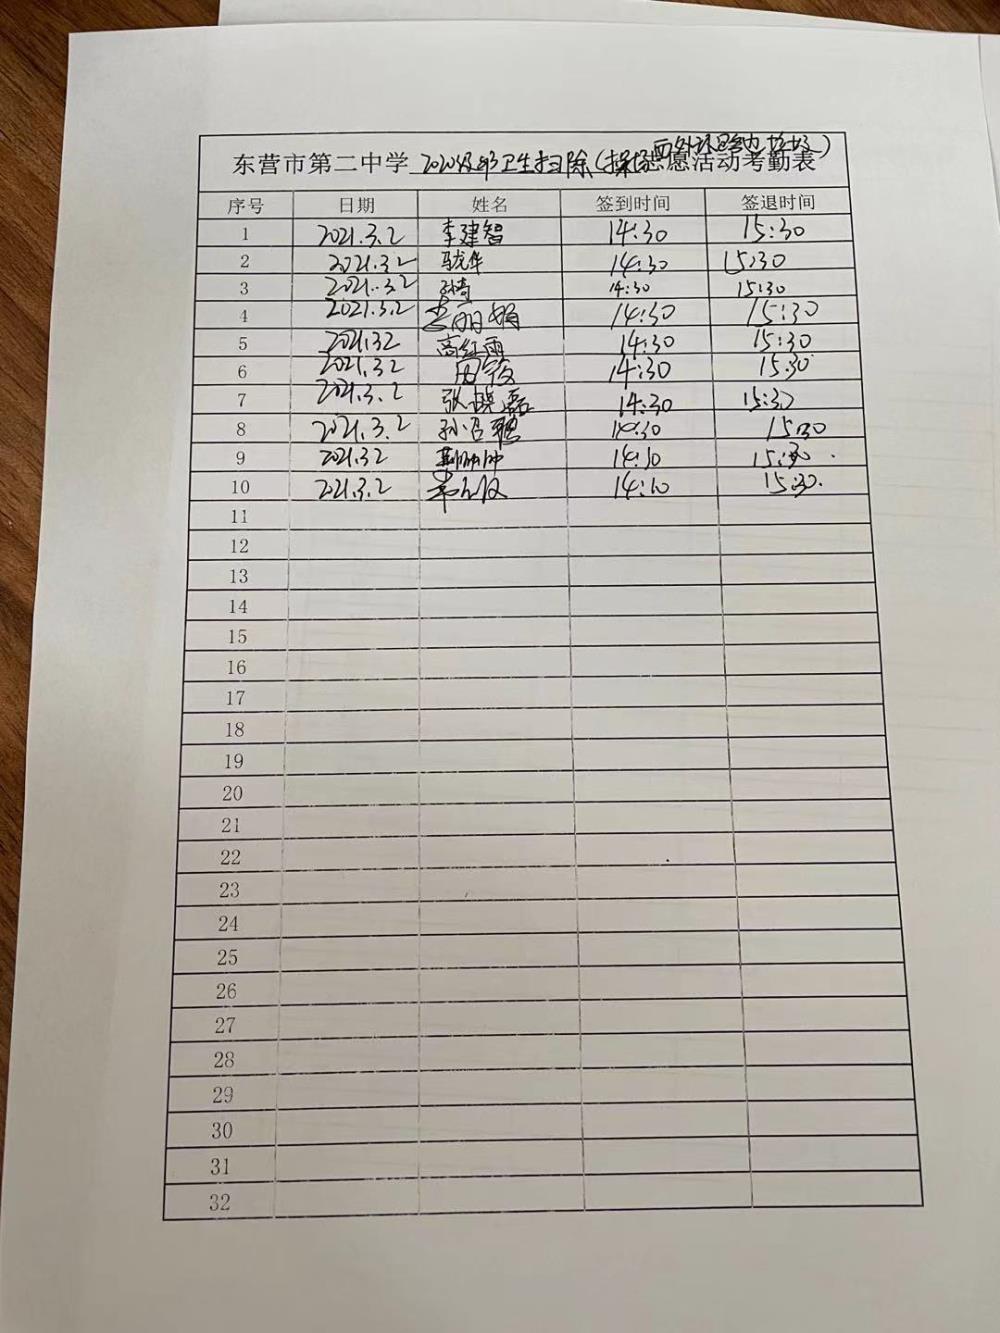 东营市第二中学 2020级部卫生扫除(操场 志愿活动考勤表
序号 日期 姓名 签到时间 签退时间
1 2021.3.2 李建智 14:30 15:30
2 2021.3.2 14:30 15:30
3 2021.3.2 14:30 15:30
4 2021.3.2 14:30 15:30
5 2021.3.2 高红雨 14:30 15:30
6 2021.3.2 14:30 15:30
7 2021.3.2 14:30 15:30
8 2021.3.2 14:30 15:30
9 2021.3.2 14:30 15:30
10 2021.3.2 15:30.
11
12
13
14
15
16
17
18
19
20
21
22
23
24
25
26
27
28
29
30
31
32